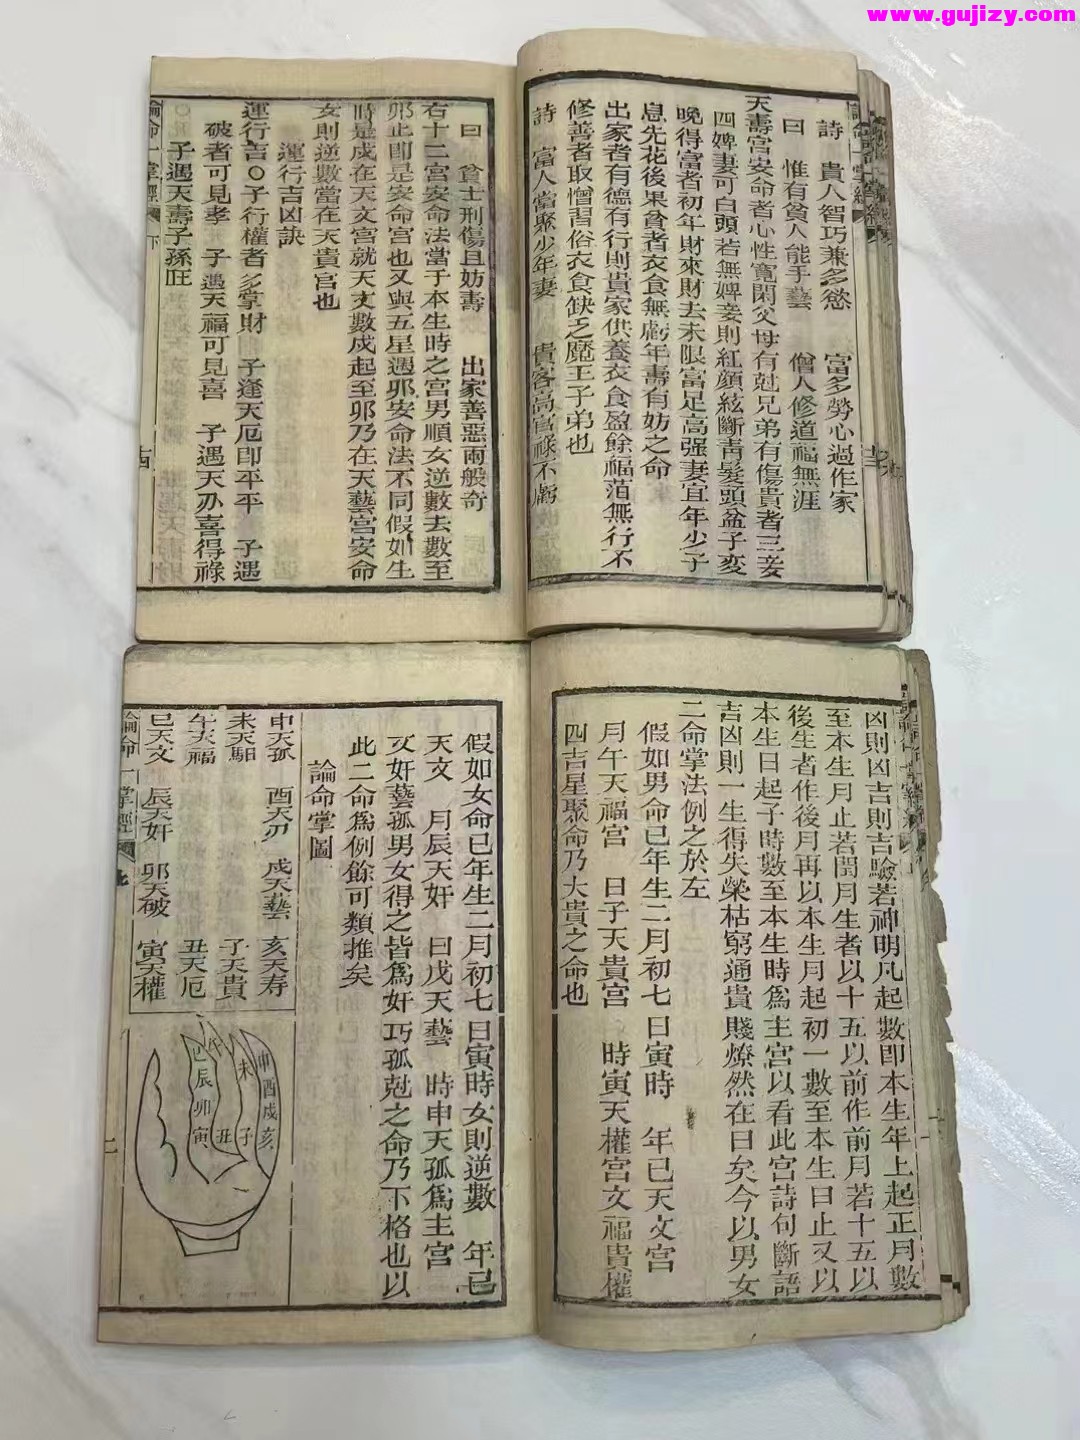 www.gujizy.com
詩　貴人智巧兼多慾　富多勞心過作家
曰　惟有貧人能手藝　僧人修道福無涯
天壽宮安命者心性寬閑父母有尅兄弟有傷貴者三妾
四婢妻可白頭若無婢妾則紅顔絃斷靑髮頭盆子变
晚得富者初年財來財去末限富足高强妻宜年少子
息先花後果貧者衣食無虧年壽有妨之命
出家者有德有行則貴家供養衣食盈餘福萡無行不
修善者取憎習俗衣食缺乏魔王子弟也
詩　富人當聚少年妻　貴客高官祿不虧
曰　貧士刑傷且妨壽　出家善惡兩般奇
右十二宮安命法當于本生時之宮男順女逆數去數至
夘止即是安命宮也又與五星遇夘安命法不同假如生
時是戌在天文宮就天文數戌起至夘乃在天藝宮安命
女則逆數當在天貴宮也
運行吉凶訣
運行吉○子行權者多掌財　子逢天厄即平平　子遇
破者可見孝　子遇天福可見喜　子遇天刅喜得祿
子遇天壽子孫旺
論命一掌經　下
凶則凶吉則吉驗若神明凡起數即本生年上起正月數
至本生月止若閏月生者以十五以前作前月若十五以
後生者作後月再以本生月起初一數至本生日止又以
本生日起子時數至本生時爲主宮以看此宮詩句斷語
吉凶則一生得失榮枯窮通貴賤燎然在目矣今以男女
二命掌法例之於左
假如男命巳年生二月初七日寅時　年巳天文宮
月午天福宮　日子天貴宮　時寅天權宮文福貴權
四吉星聚命乃大貴之命也
假如女命巳年生二月初七日寅時女則逆數　年巳
天文　月辰天奸　日戌天藝　時申天孤爲主宮
文奸藝孤男女得之皆爲奸巧孤尅之命乃下格也以
此二命爲例餘可類推矣
論命掌圖
申天孤　酉天刃　戌天藝　亥天寿
未天馹　子天貴
午天福　丑天厄
巳天文　辰天奸　卯天破　寅天權
論命一掌經
巳
辰
卯
寅
午
丑
未
子
申
酉
戌
亥